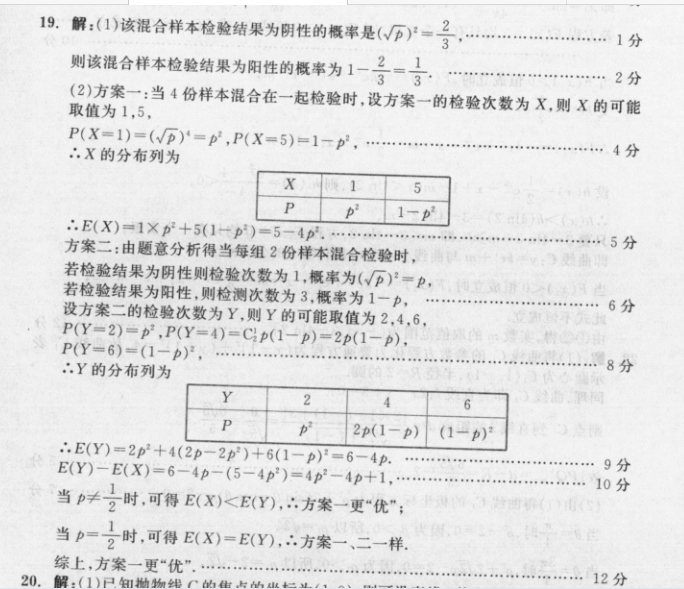 19. 解:(1)该混合样本检验结果为阴性的概率是(√p)²=2/3, …… 1分
则该混合样本检验结果为阳性的概率为1-2/3=1/3. …… 2分
(2)方案一:当4份样本混合在一起检验时,设方案一的检验次数为X,则X的可能
取值为1,5,
P(X=1)=(√p)⁴=p²,P(X=5)=1-p², …… 4分
∴X的分布列为
X 1 5
P p² 1-p²
∴E(X)=1×p²+5(1-p²)=5-4p². …… 5分
方案二:由题意分析得当每组2份样本混合检验时,
若检验结果为阴性则检验次数为1,概率为(√p)²=p,
若检验结果为阳性,则检测次数为3,概率为1-p, …… 6分
设方案二的检验次数为Y,则Y的可能取值为2,4,6,
P(Y=2)=p²,P(Y=4)=C¹₂p(1-p)=2p(1-p),
P(Y=6)=(1-p)², …… 8分
∴Y的分布列为
Y 2 4 6
P p² 2p(1-p) (1-p)²
∴E(Y)=2p²+4(2p-2p²)+6(1-p)²=6-4p. …… 9分
E(Y)-E(X)=6-4p-(5-4p²)=4p²-4p+1, …… 10分
当p≠1/2时,可得E(X)<E(Y),∴方案一更“优”;
当p=1/2时,可得E(X)=E(Y),∴方案一、二一样.
综上,方案一更“优”. …… 12分
20. 解:(1)已知抛物线C的焦点的坐标为(1,0)